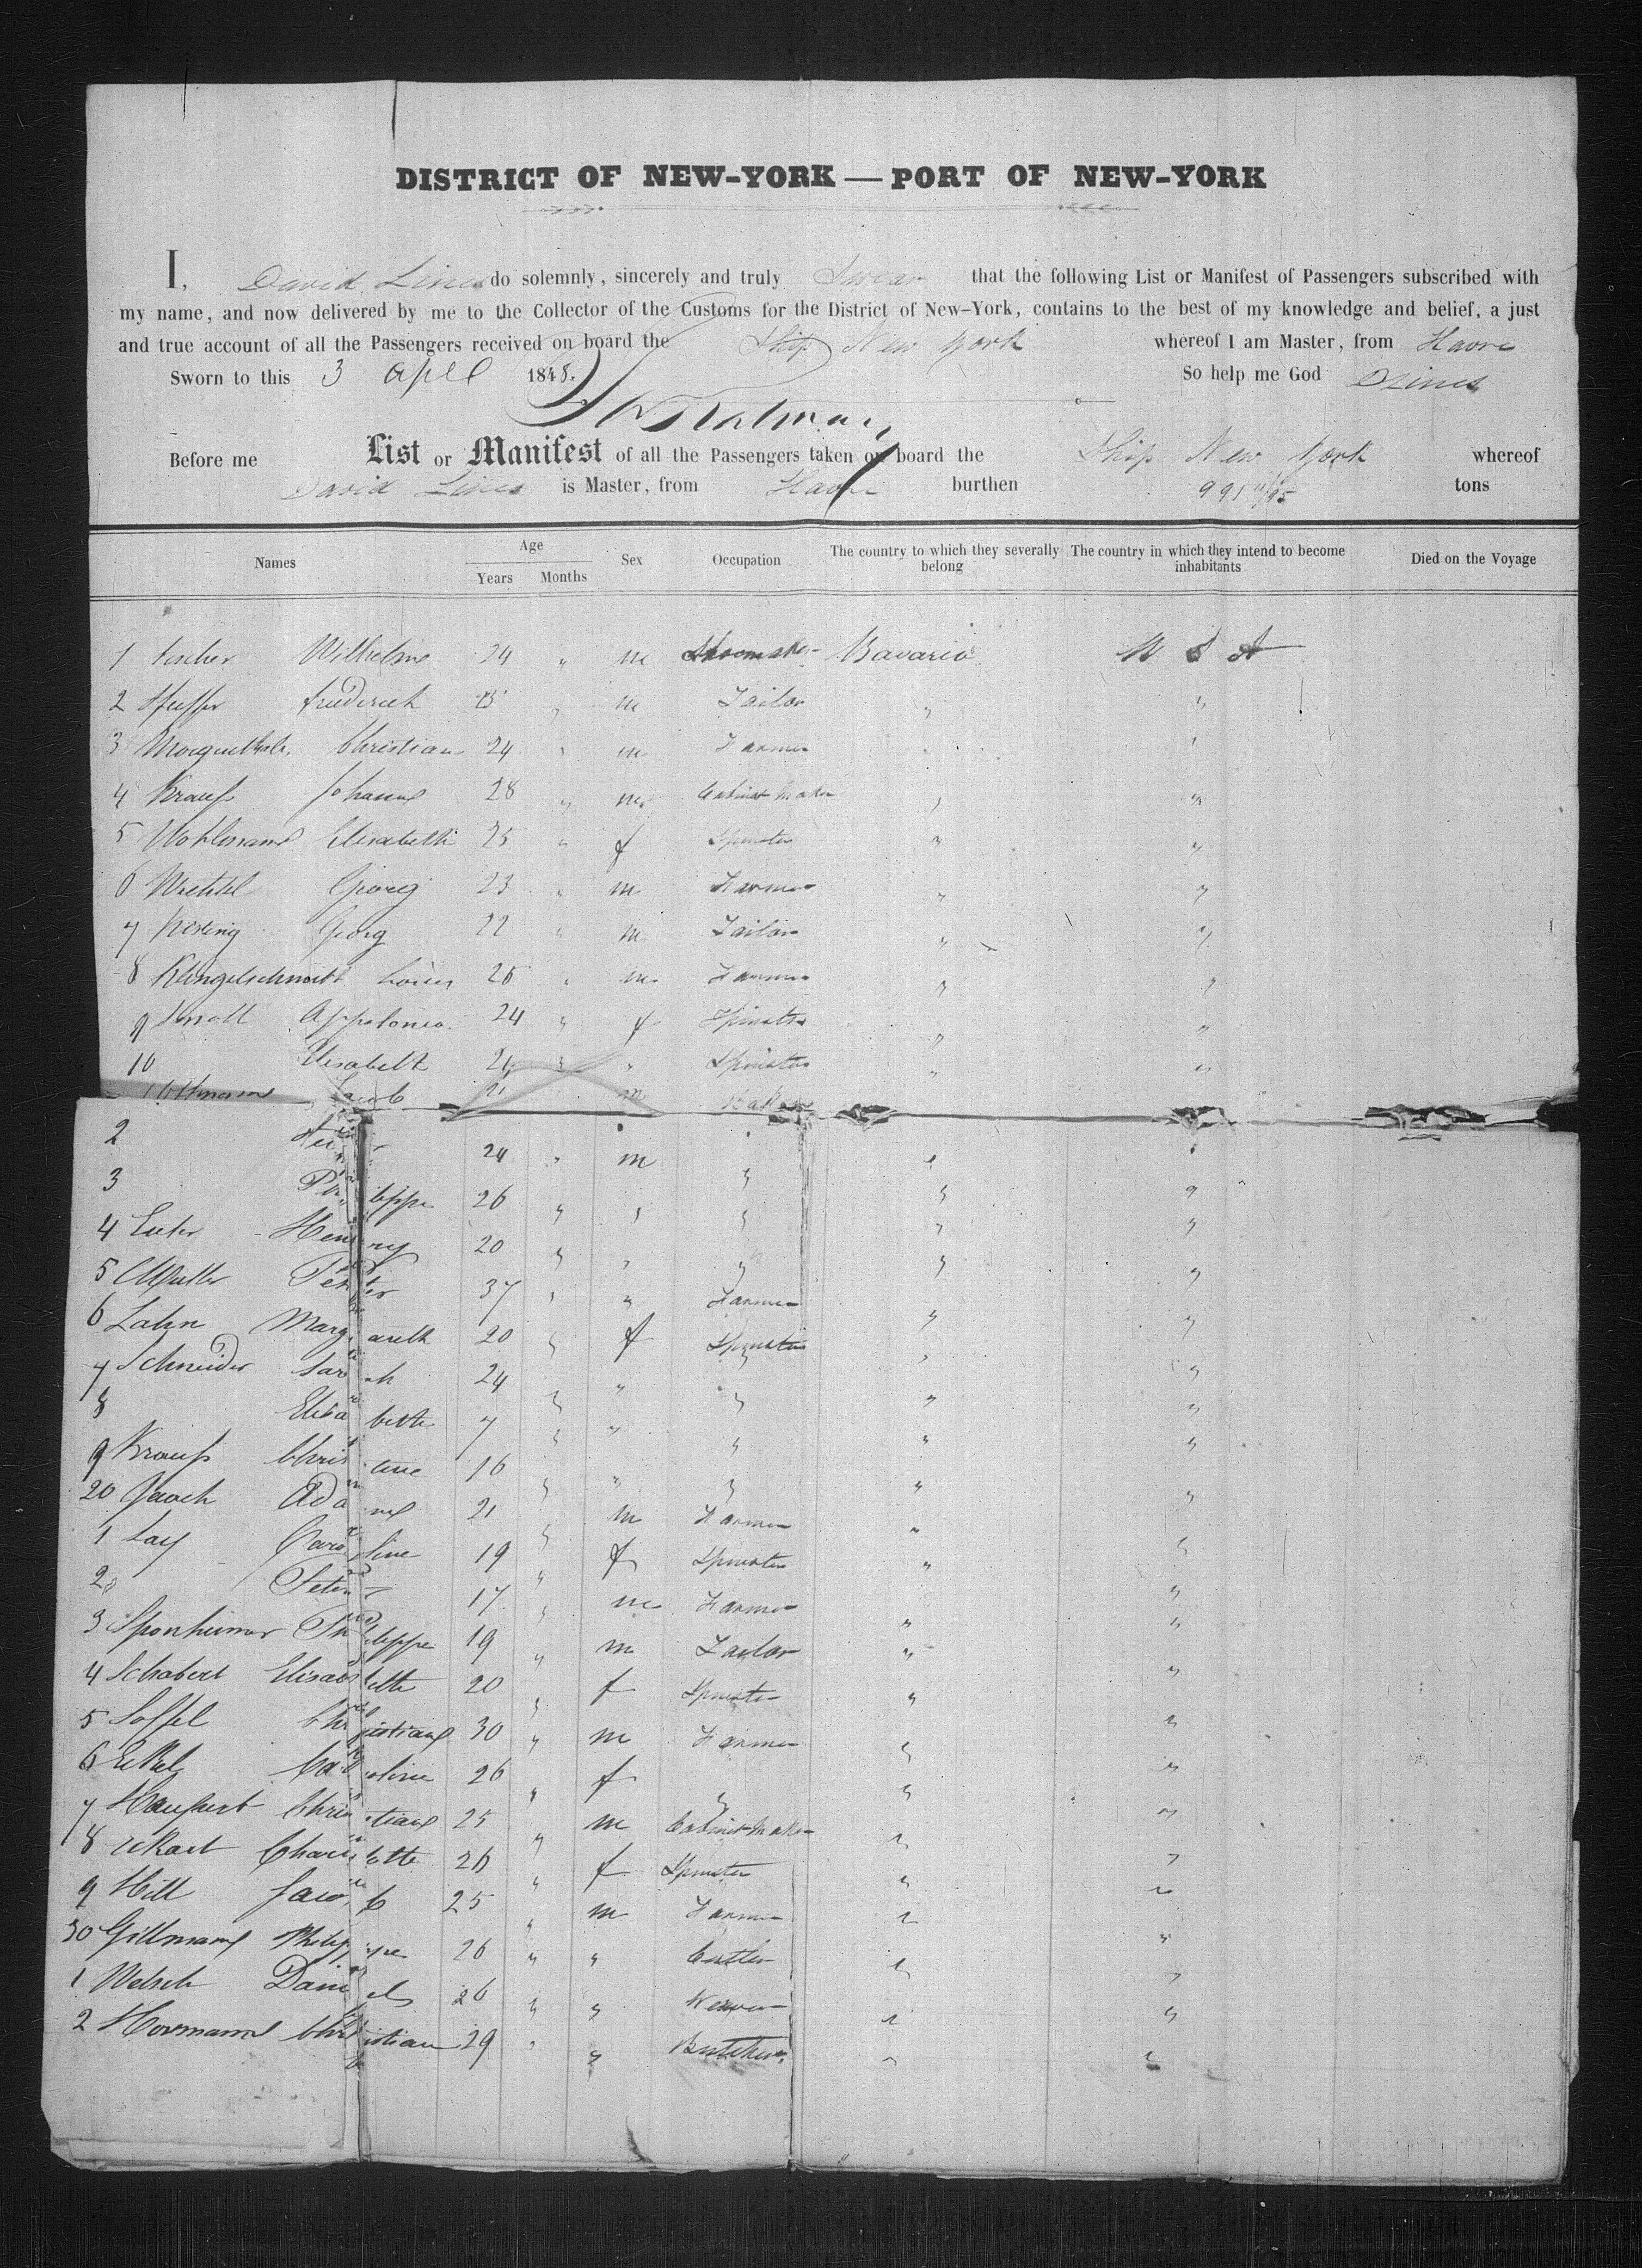 DISTRICT OF NEW-YORK — PORT OF NEW-YORK
I, David Lines do solemnly, sincerely and truly Swear that the following List or Manifest of Passengers subscribed with
my name, and now delivered by me to the Collector of the Customs for the District of New-York, contains to the best of my knowledge and belief, a just
and true account of all the Passengers received on board the Ship New York whereof I am Master, from Havre
Sworn to this 3 Apll 1848. So help me God D Lines
Before me List or Manifest of all the Passengers taken on board the Ship New York whereof
David Lines is Master, from Havre burthen 991 11/95 tons
Names Age Years Months Sex Occupation The country to which they severally belong The country in which they intend to become inhabitants Died on the Voyage
1 Fischer Wilhelm 24 " m Shoemaker Bavaria U S A
2 Friederich " m Tailor " "
3 Christian 24 " m Farmer " "
4 Krauss Johann 28 " m Cabinet Maker " "
5 Wohlmann Elisabeth 25 " f Spinster " "
6 Georg 23 " m Farmer " "
7 Georg 22 " m Tailor " "
8 Klingelschmitt Louis 25 " m Farmer " "
9 Appolonia 24 " f Spinster " "
10 Elisabeth 21 " " Spinster " "
Jacob 21 m Baker
2 24 " m " " "
3 Philippe 26 " " " " "
4 Henry 20 " " " " "
5 Muller Peter 37 " " Farmer " "
6 Lahn Margareth 20 " f Spinster " "
7 Schneider Sarah 24 " " " " "
8 Elisabeth 7 " " " " "
9 Krauss Christine 16 " " " " "
20 Adam 21 " m Farmer " "
1 Lay Caroline 19 " f Spinster " "
2 Peter 17 " m Farmer " "
3 Sponheimer Philippe 19 " m Tailor " "
4 Schabert Elisabeth 20 " f Spinster " "
5 Soffel Christian 30 " m Farmer " "
6 Caroline 26 " f " " "
7 Haupert Christian 25 " m Cabinet Maker " "
8 Eckart Charlotte 26 " f Spinster " "
9 Hill Jacob 25 " m Farmer " "
30 Gillmann Philippe 26 " " Cutler " "
1 Welsch Daniel 26 " " Weaver " "
2 Hormann Christian 29 " " Butcher " "